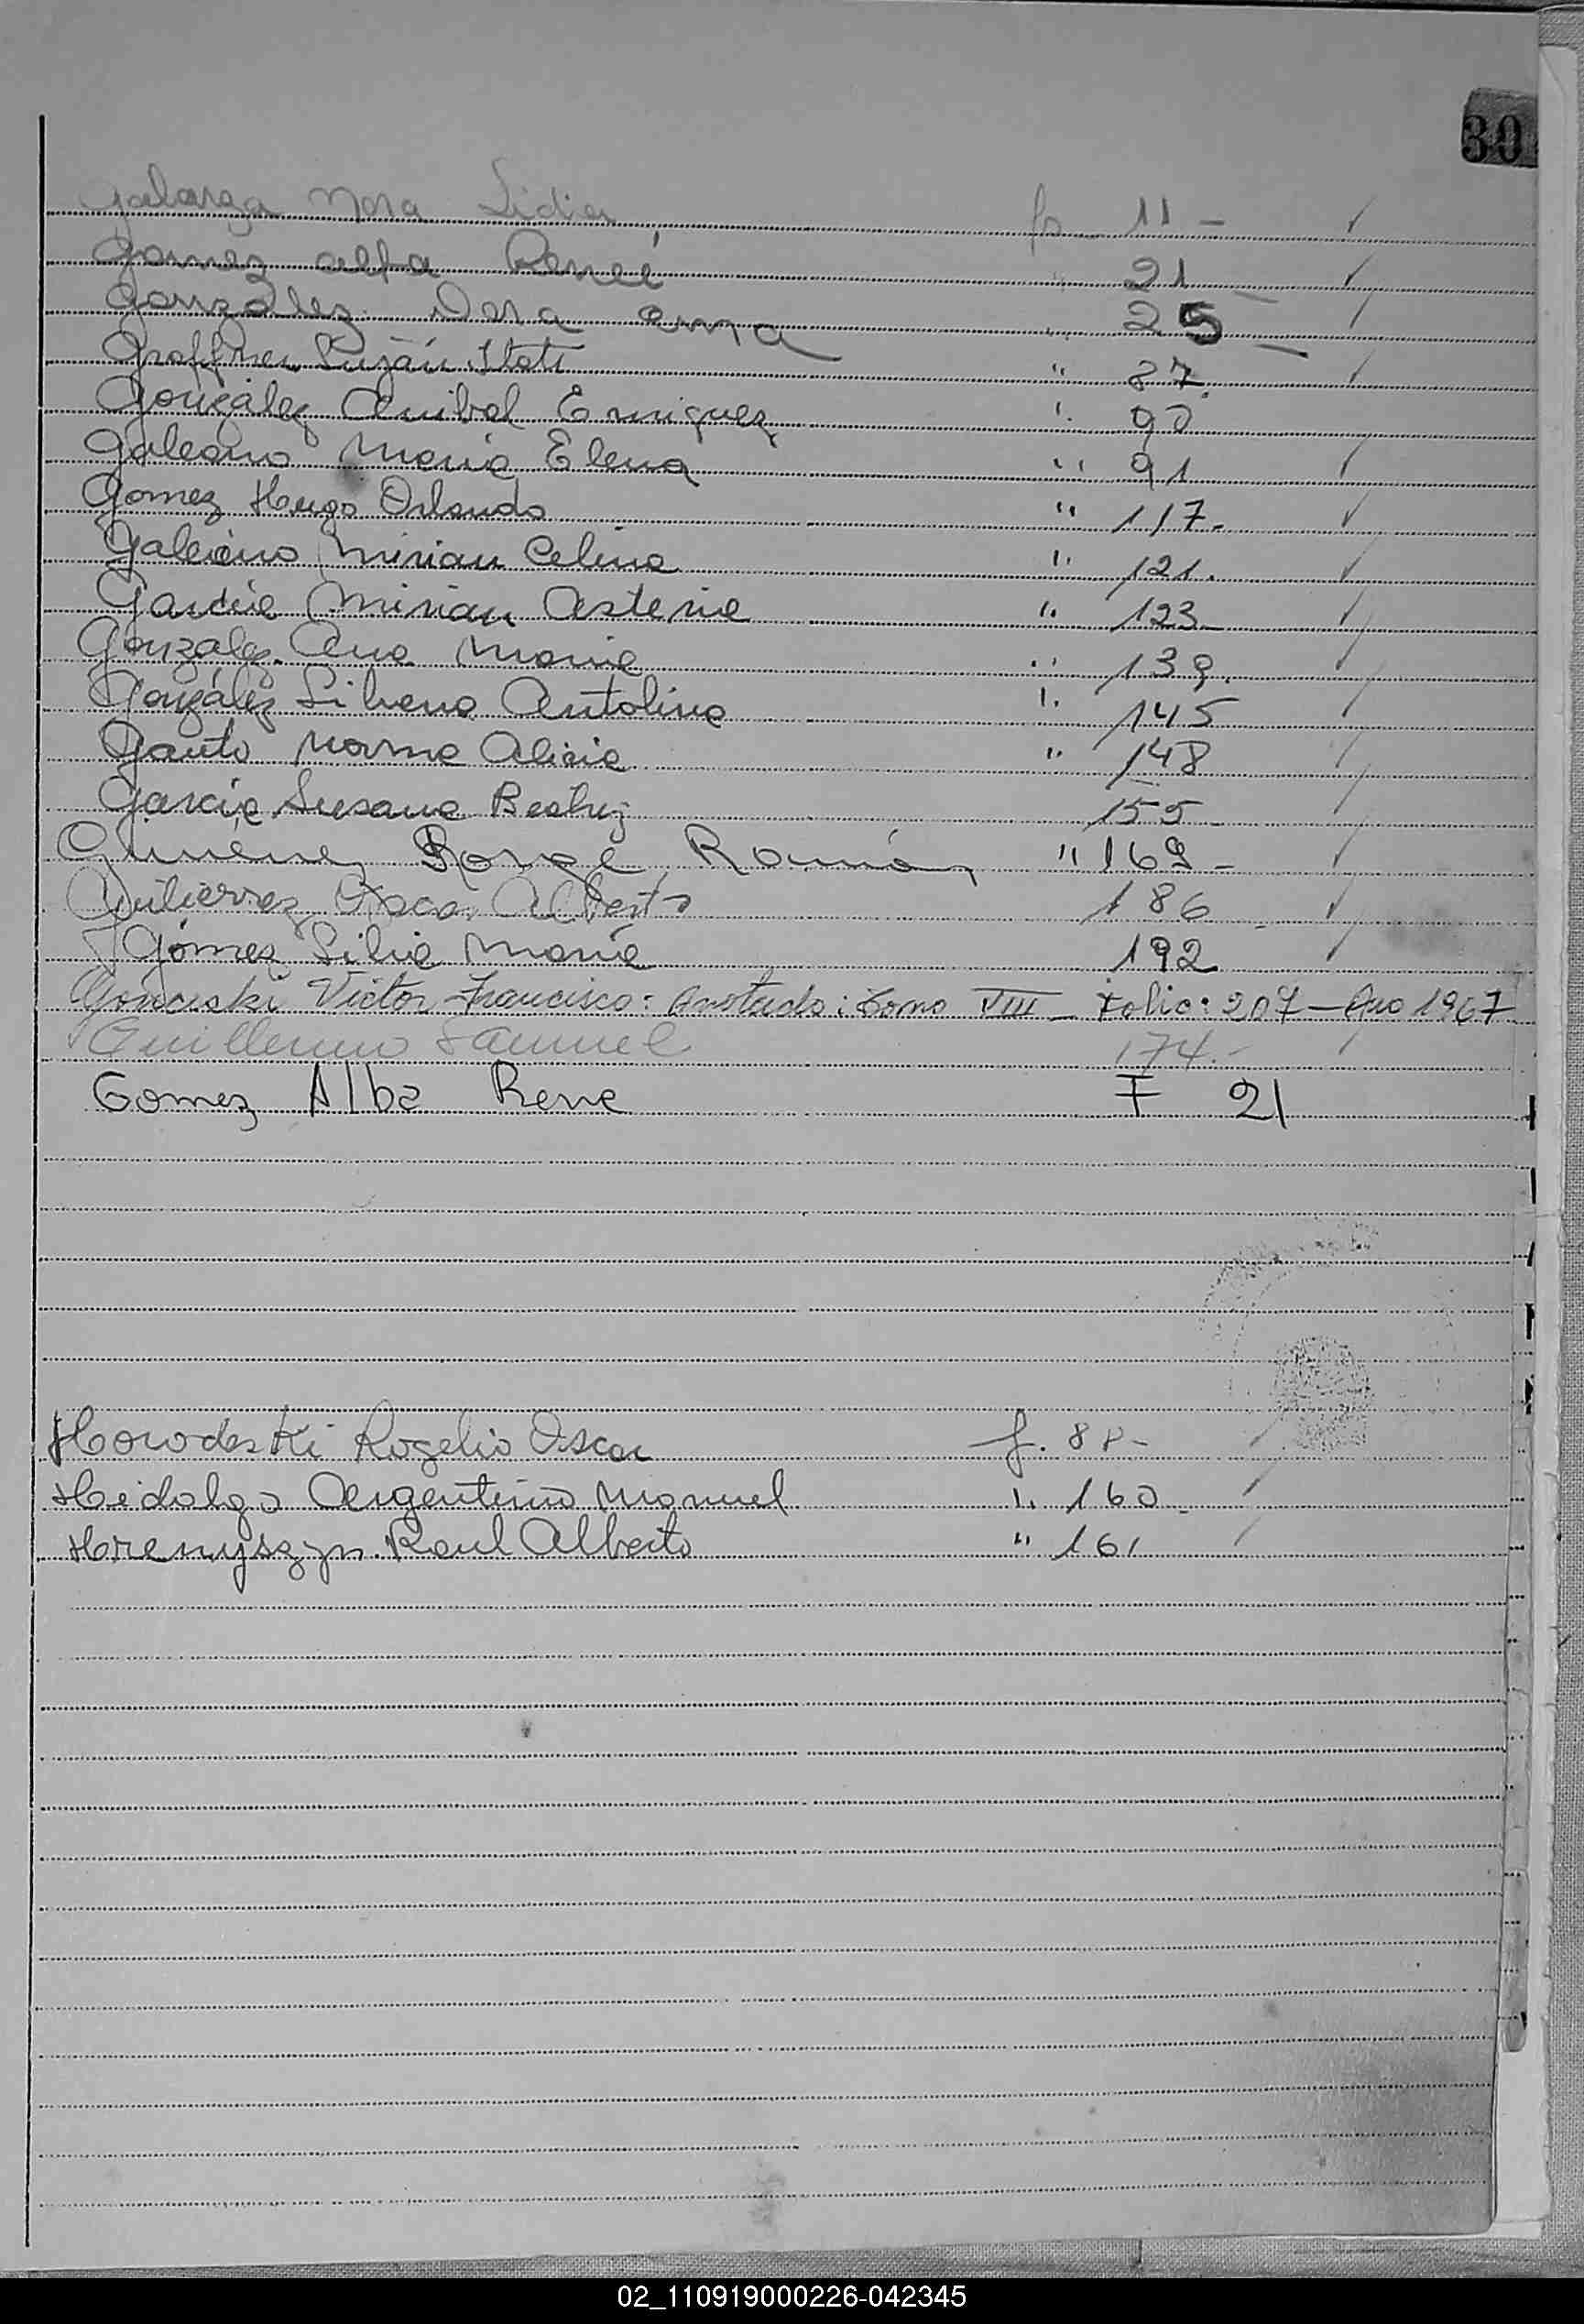 30
Galarza Nora Lidia fo 11 -
Gomez Alba Reneé " 21 -
González Dora Ema " 25 -
Graffner Luján Itatí " 87.
González Anibal Enriquez " 90
Galeano Maria Elena " 91
Gomez Hugo Orlando " 117.
Galeano Mirian Celina " 121.
García Mirian Asteria " 123
González Ana Maria " 139.
González Liliana Antolina " 145
Gauto Norma Alicia " 148
García Susana Beatriz 155
Gimenez Jorge Ramón " 169 -
Gutierrez Oscar Alberto 186
Gómez Silvia María 192
Gonciski Victor Francisco: Anotado: Tomo VIII - Folio: 207 - Año 1967
Guillermo Samuel 174.-
Gomez Alba Rene F 21
Horodeski Rogelio Oscar f. 88-
Hidalgo Argentino Manuel " 160
Hrenyszyn Raul Alberto " 161
02_110919000226-042345